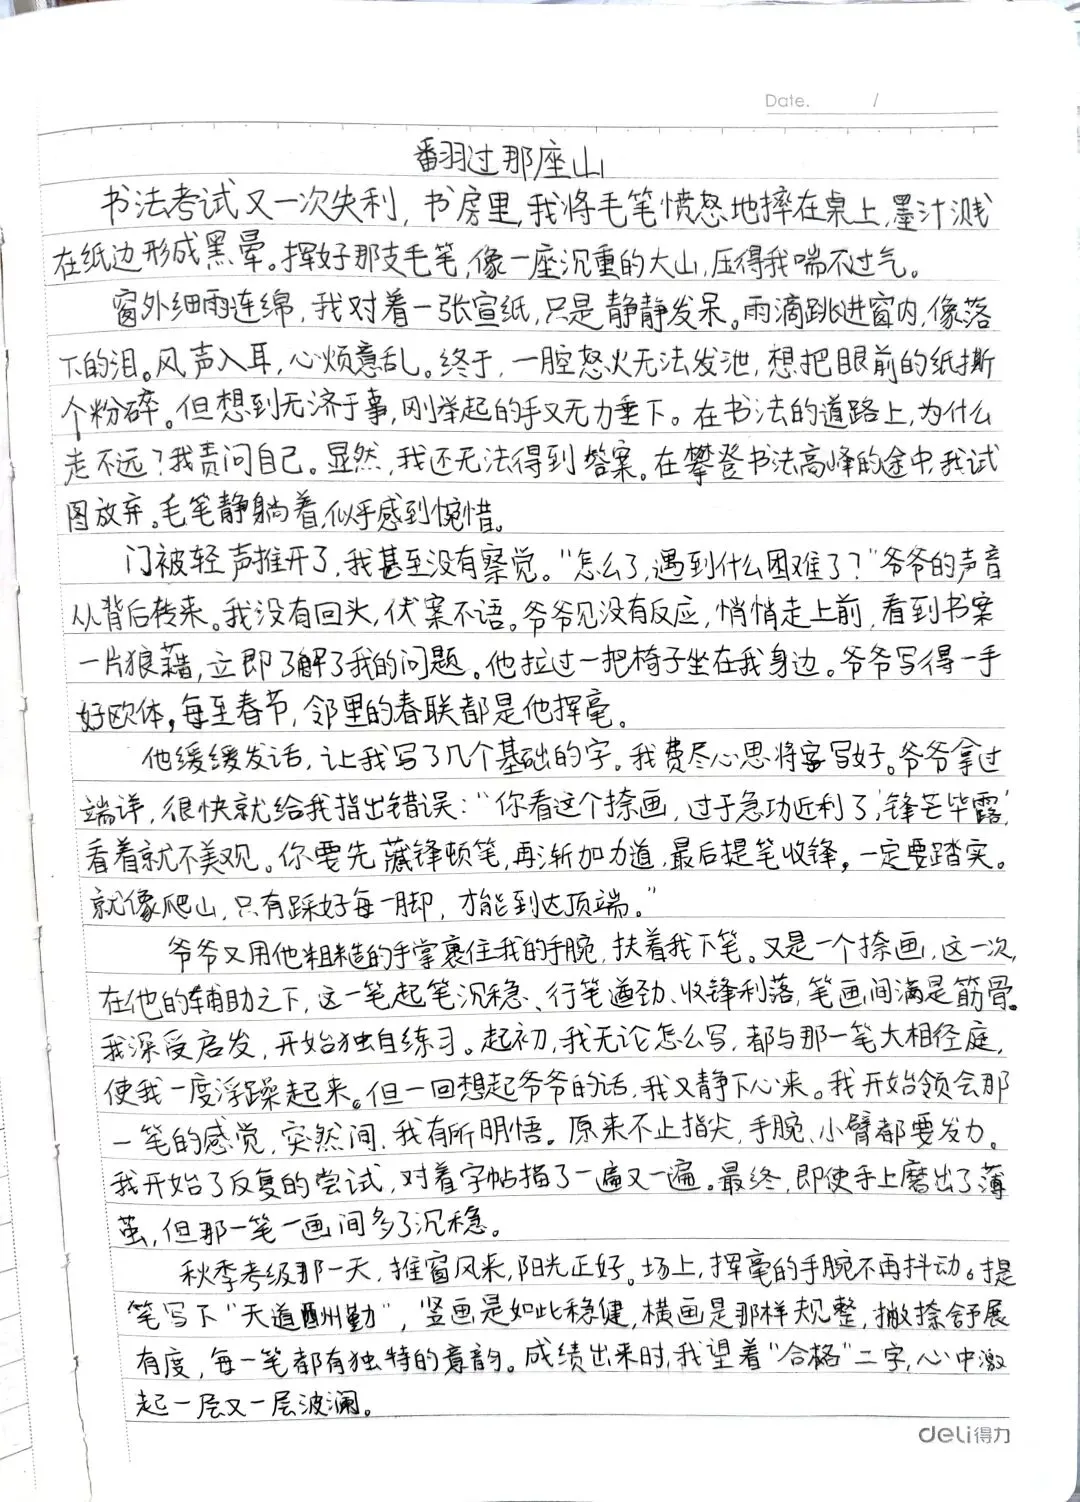 Date. /
翻过那座山
书法考试又一次失利，书房里，我将毛笔愤怒地摔在桌上，墨汁溅
在纸边形成黑晕。挥好那支毛笔，像一座沉重的大山，压得我喘不过气。
窗外细雨连绵，我对着一张宣纸，只是静静发呆。雨滴跳进窗内，像落
下的泪。风声入耳，心烦意乱。终于，一腔怒火无法发泄，想把眼前的纸撕
个粉碎。但想到无济于事，刚举起的手又无力垂下。在书法的道路上，为什么
走不远？我责问自己。显然，我还无法得到答案。在攀登书法高峰的途中，我试
图放弃。毛笔静躺着，似乎感到惋惜。
门被轻声推开了，我甚至没有察觉。“怎么了，遇到什么困难了？”爷爷的声音
从背后传来。我没有回头，伏案不语。爷爷见没有反应，悄悄走上前，看到书案
一片狼藉，立即了解了我的问题。他拉过一把椅子坐在我身边。爷爷写得一手
好欧体，每至春节，邻里的春联都是他挥毫。
他缓缓发话，让我写了几个基础的字。我费尽心思将字写好。爷爷拿过
端详，很快就给我指出错误：“你看这个捺画，过于急功近利了，‘锋芒毕露’，
看着就不美观。你要先藏锋顿笔，再渐加力道，最后提笔收锋，一定要踏实。
就像爬山，只有踩好每一脚，才能到达顶端。”
爷爷又用他粗糙的手掌裹住我的手腕，扶着我下笔。又是一个捺画，这一次，
在他的辅助之下，这一笔起笔沉稳、行笔遒劲、收锋利落，笔画间满是筋骨。
我深受启发，开始独自练习。起初，我无论怎么写，都与那一笔大相径庭，
使我一度浮躁起来。但一回想起爷爷的话，我又静下心来。我开始领会那
一笔的感觉，突然间，我有所明悟。原来不止指尖，手腕、小臂都要发力。
我开始了反复的尝试，对着字帖描了一遍又一遍。最终，即使手上磨出了薄
茧，但那一笔一画间多了沉稳。
秋季考级那一天，推窗风来，阳光正好。场上，挥毫的手腕不再抖动。提
笔写下“天道酬勤”，竖画是如此稳健，横画是那样规整，撇捺舒展
有度，每一笔都有独特的意韵。成绩出来时，我望着“合格”二字，心中激
起一层又一层波澜。
deli得力